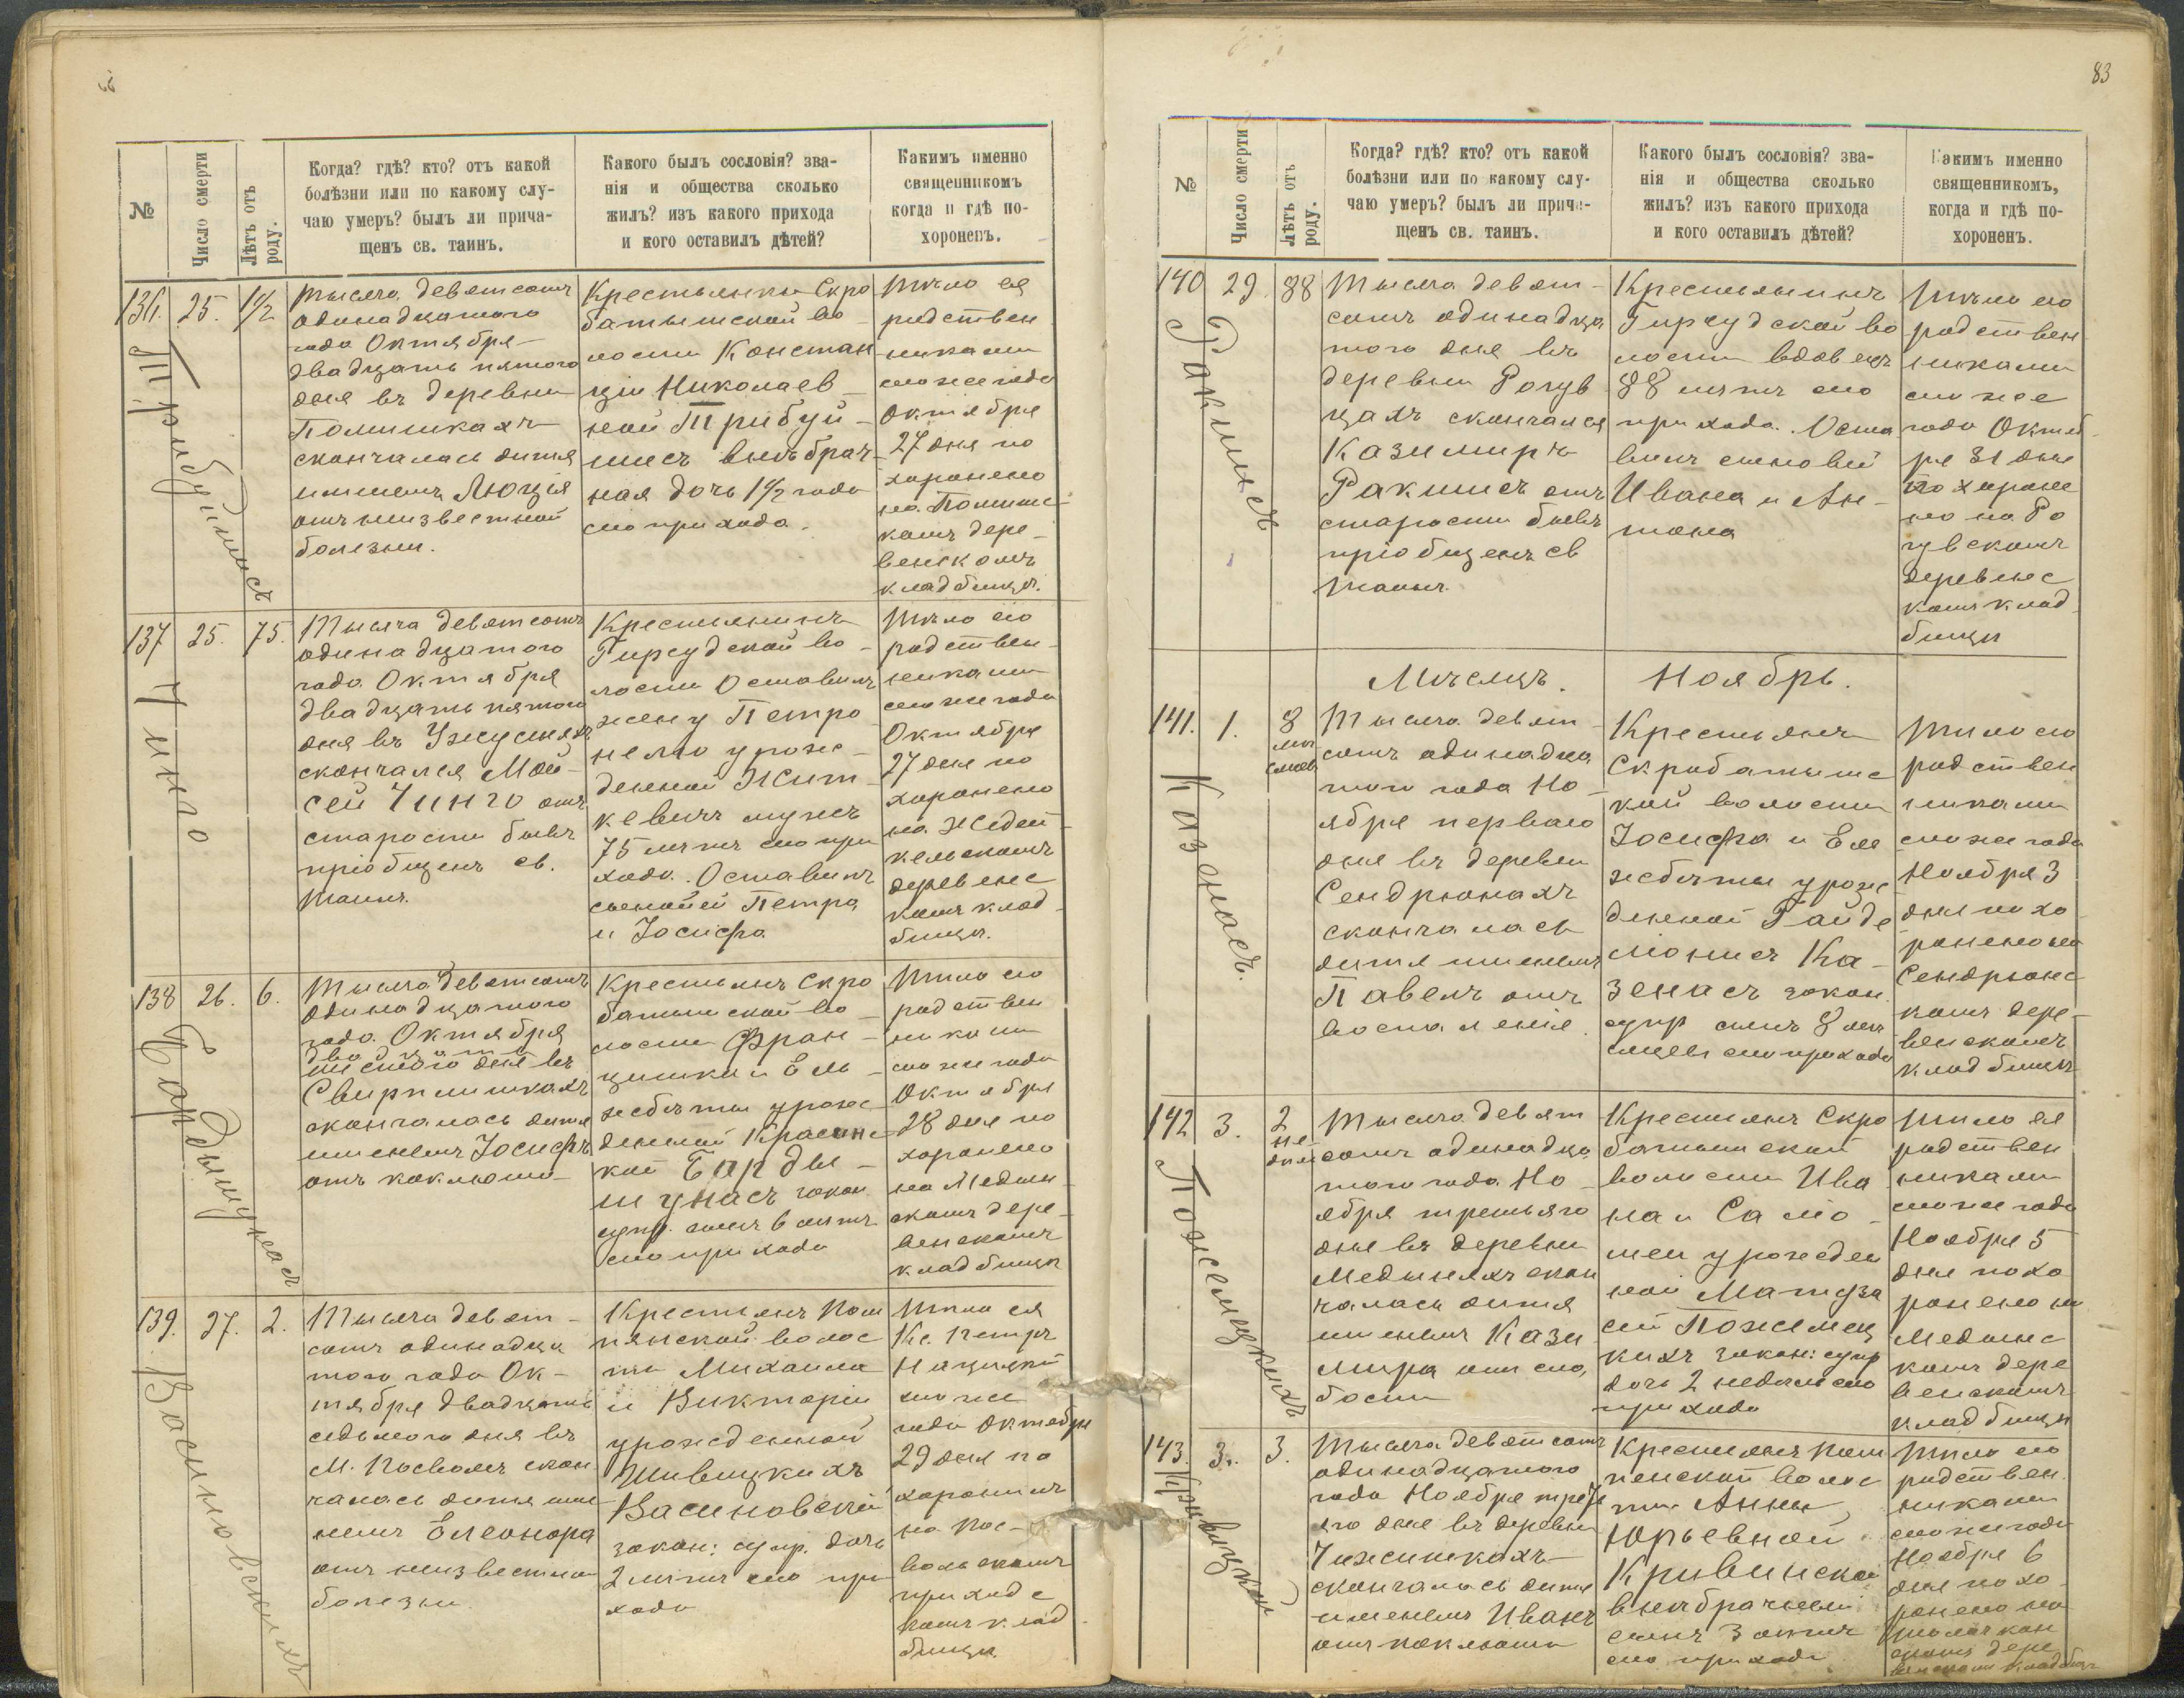 83
№
Число смерти
Лѣтъ отъ роду.
Когда? гдѣ? кто? отъ какой
болѣзни или по какому слу-
чаю умеръ? былъ ли прича-
щенъ св. таинъ.
Какого былъ сословія? зва-
нія и общества сколько
жилъ? изъ какого прихода
и кого оставилъ дѣтей?
Какимъ именно
священникомъ
когда и гдѣ по-
хороненъ.
136.
25.
1½
Трибуйшисъ
Тысяча девятсотъ
одинадцатого
года Октября
двадцать пятого
дня въ деревни
скончалась дитя
именемъ Люція
отъ неизвестной
болезни.
Крестьянки Скро
батышской во
лости Констан
ціи Николаев
ной Трибуй
шисъ внѣбрач
ная дочь 1½ года
сего прихода.
Тѣло ея
родствен
никами
сего же года
Октября
27 дня по
хоронено
на
комъ дере
венскомъ
кладбищи.
137
25.
75.
Чинго
Тысяча девятсотъ
одинадцатого
года Октября
двадцать пятого
дня въ
скончался Мой
сей Чинго отъ
старости бывъ
пріобщенъ св.
Таинъ.
Крестьянинъ
Гирсудской во
лости Оставилъ
жену Петро
нелю урож
денной Жит
кевичъ мужъ
75 летъ сего при
хода. Оставилъ
сыновей Петра
и Іосифа
Тѣло его
родствен
никами
сего же года
Октября
27 дня по
хоронено
на Жедей
кельскомъ
деревенс
комъ клад
бищи.
138
26.
6.
Бардышунасъ
Тысяча девятсотъ
одинадцатого
года Октября
двадцать
шестого дня въ
Свирплишкахъ
скончалась дитя
именемъ Іосифъ
отъ коклюша
Крестьянъ Скро
батышской во
лости Фран
цишка и Ель
жбеты урож
денной Красинс
кой Барды
шунасъ закон
супр. сынъ 6 летъ
сего прихода
Тѣло его
родствен
никами
сего же года
Октября
28 дня по
хоронено
на Медин
скомъ дере
венскомъ
кладбищи
139.
27.
2.
Васиновскихъ
Тысяча девят
сотъ одинадца
того года Ок
тября двадцать
седьмого дня въ
М. Посволь скон
чалась дитя име
немъ Елеонора
отъ неизвестной
болезни.
Крестьянъ Пом
пянской волос
ти Михаила
и Викторіи
урожденной
Шивицкихъ
Васиновскій
закон: супр. дочь
2 летъ сего при
хода
Тѣло ея
Кс. Петръ
сего же
года Октября
29 дня по
хоронилъ
на Пос
вольскомъ
приходс
комъ клад
бищи.
№
Число смерти
Лѣтъ отъ роду.
Когда? гдѣ? кто? отъ какой
болѣзни или по какому слу-
чаю умеръ? былъ ли приче-
щенъ св. таинъ.
Какого былъ сословія? зва-
нія и общества сколько
жилъ? изъ какого прихода
и кого оставилъ дѣтей?
Какимъ именно
священникомъ,
когда и гдѣ по-
хороненъ.
140
29.
88
Ракшисъ
Тысяча девят
сотъ одинадца
того дня въ
деревни Рогув
цахъ скончался
Казимиръ
Ракшисъ отъ
старости бывъ
пріобщенъ св
Таинъ.
Крестьянинъ
Гирсудской во
лости вдовецъ
88 летъ сего
прихода. Оста
вилъ сыновей
Ивана и Ан
тона
Тѣло его
родствен
никами
сего же
года Октяб
ря 31 дня
похороне
но на Ро
гувскомъ
деревенс
комъ клад
бищи
Мѣсяцъ. Ноябрь.
141.
1.
8
мѣ
сяцев
Казенасъ.
Тысяча девят
сотъ одинадца
того года Но
ября перваго
дня въ деревни
Сендрюнахъ
скончалась
дитя именемъ
Павелъ отъ
воспаленія.
Крестьянъ
Скробатышс
кой волости
Іосифа и Ель
жбеты урож
денной Гайде
Ка
зенасъ закон.
супр сынъ 8 ме
сяцевъ сего прихода
Тѣло его
родствен
никами
сего же года
Ноября 3
дня похо
ронено на
Сендрюнс
комъ дере
венскомъ
кладбищи
142
3.
2
не
дели
Пожемецкихъ
Тысяча девят
сотъ одинадца
того года Но
ября третьяго
дня въ деревни
Мединяхъ скон
чалась дитя
именемъ Кази
мира отъ сла
бости
Крестьянъ Скро
батышской
волости Ива
на и Сало
меи урожден
ной Матуза
сей Пожемец
кихъ закон: супр
дочь 2 недели сего
прихода
Тѣло ея
родствен
никами
сего же года
Ноября 5
дня похо
ронено на
Мединс
комъ дере
венскомъ
кладбищи
143.
3.
3.
Тысяча девятсотъ
одинадцатого
года Ноября треть
яго дня въ деревни
Чижишкахъ
скончалась дитя
именемъ Иванъ
отъ коклюша
Крестьянъ Пом
пенской волос
ти Анны
Юрьевной
Кривинской
внебрачный
сынъ 3 летъ
сего прихода
Тѣло его
родствен
никами
сего же года
Ноября 6
дня похо
ронено на
скомъ дере
венскомъ кладбищи